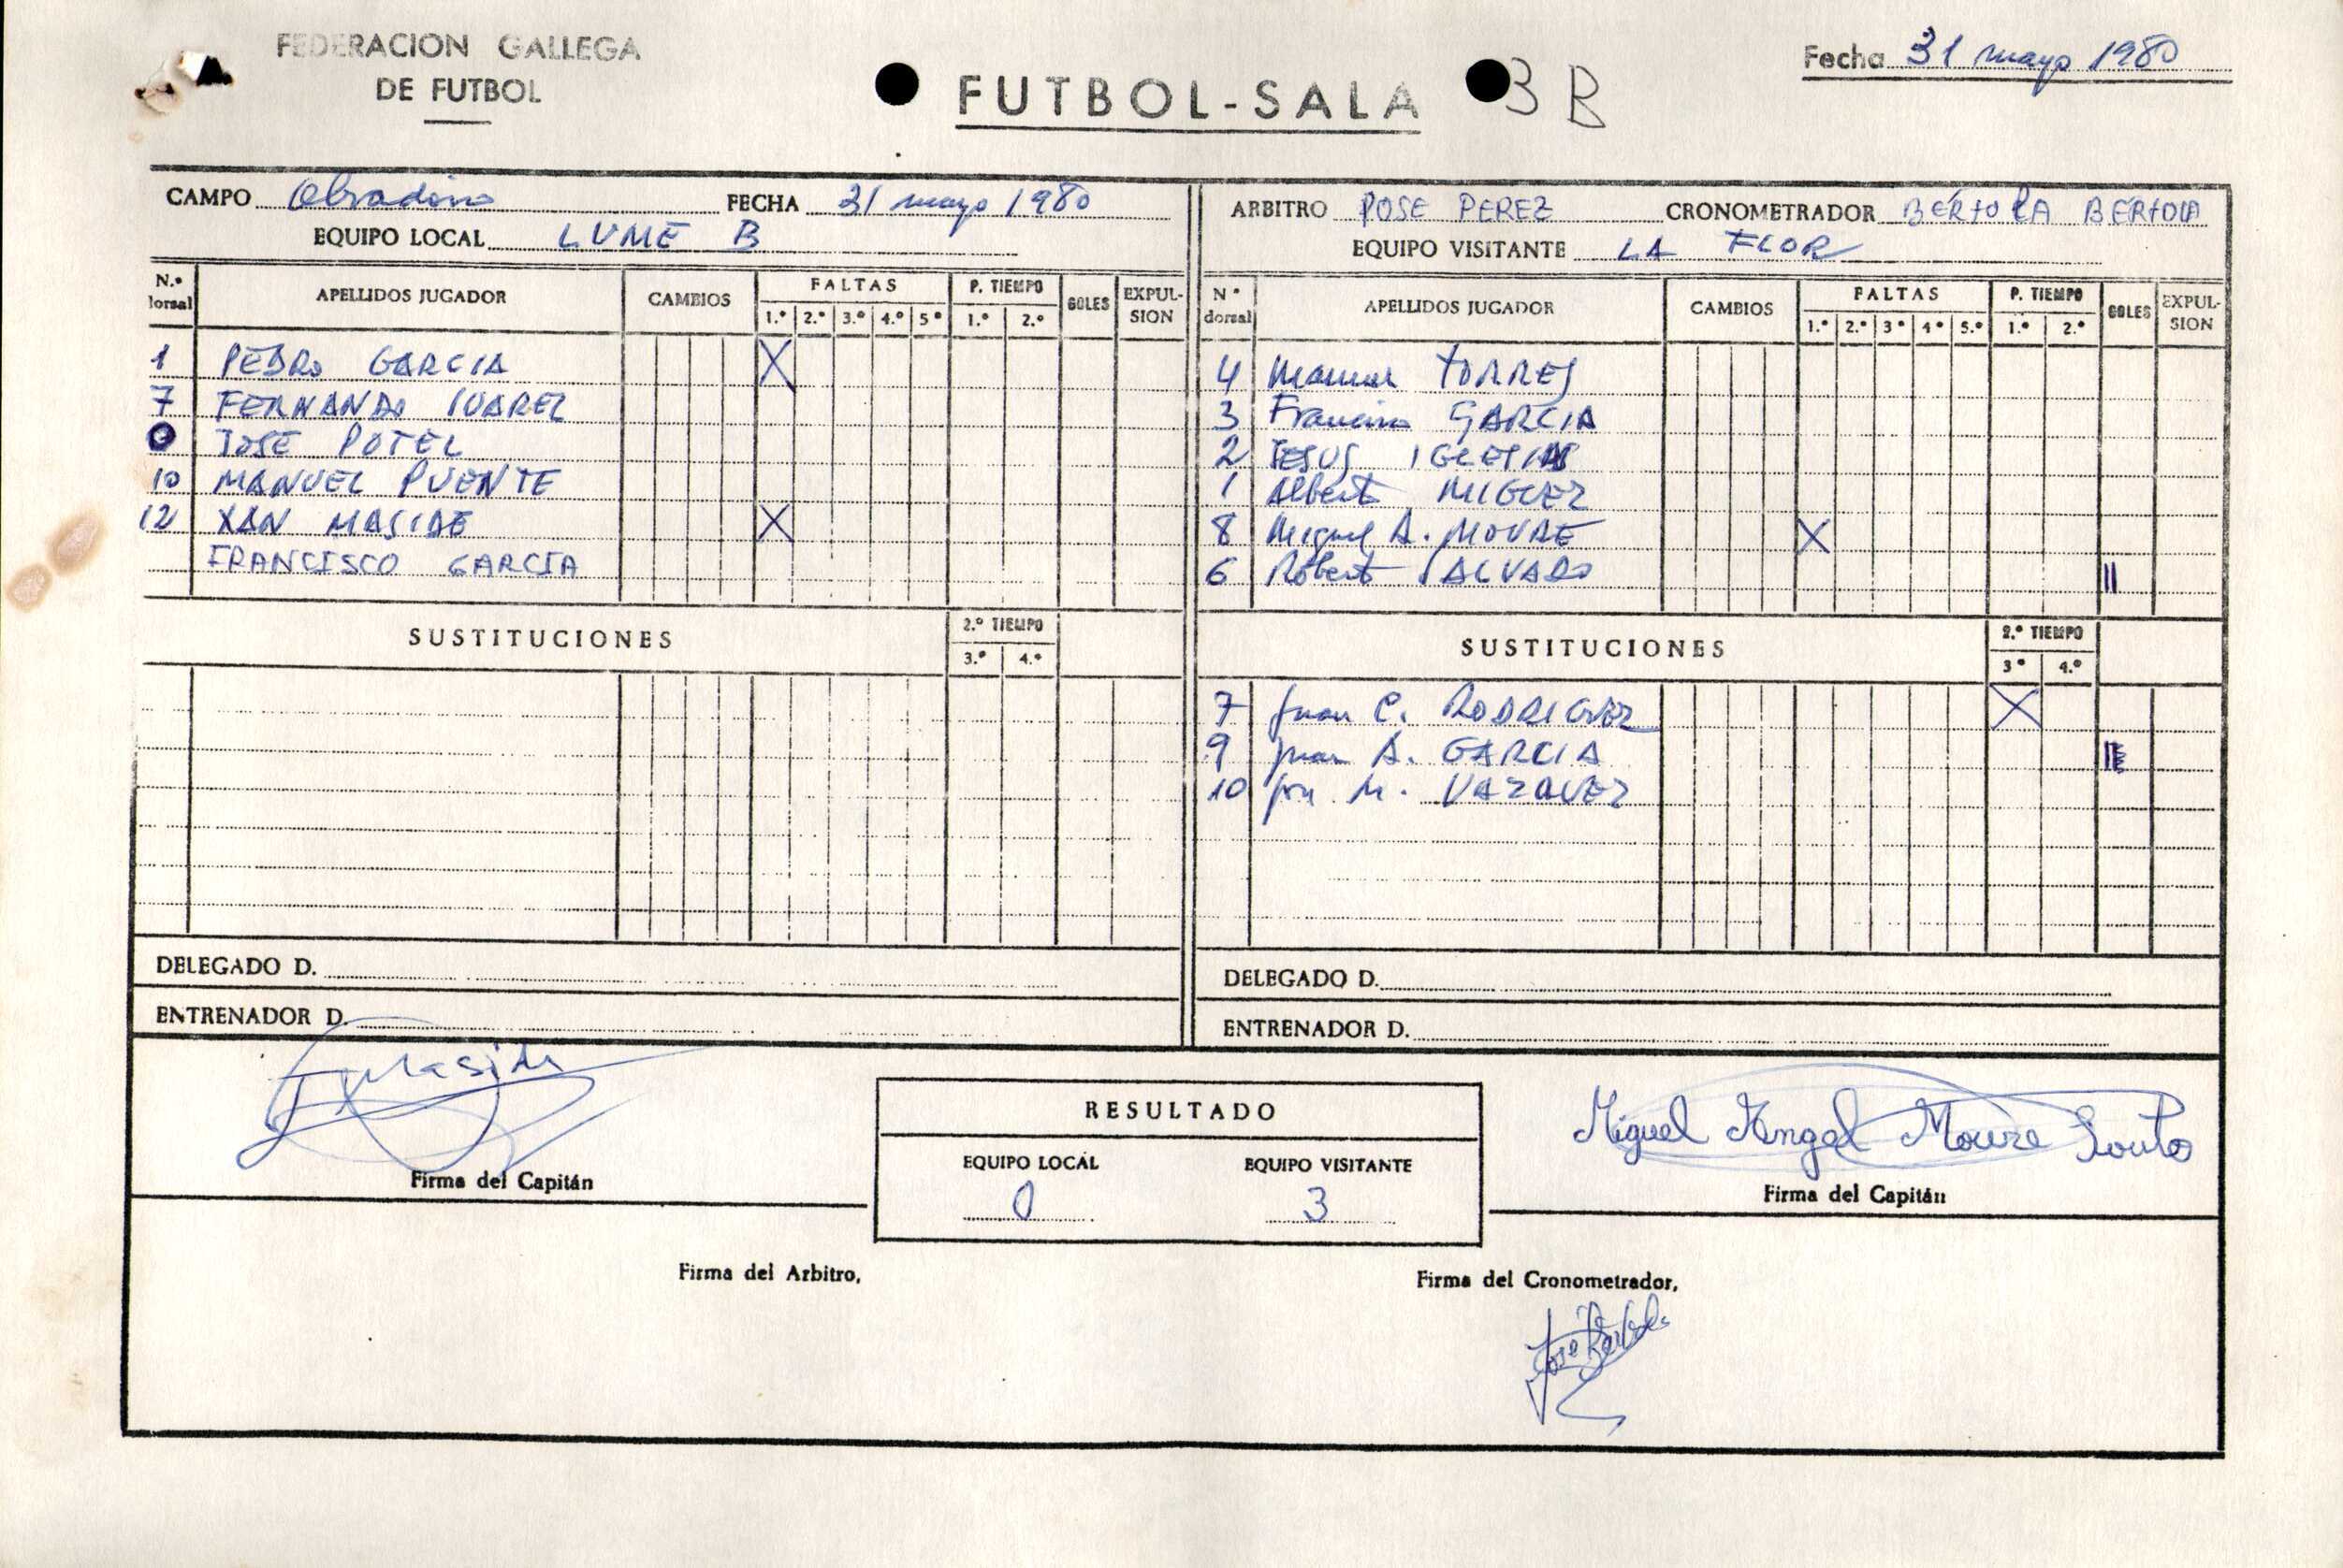 FEDERACION GALLEGA
DE FUTBOL
FUTBOL-SALA 3 B
Fecha 31 mayo 1980
CAMPO Obradoiro FECHA 31 mayo 1980
EQUIPO LOCAL LUME B
N.º dorsal APELLIDOS JUGADOR CAMBIOS FALTAS 1.º 2.º 3.º 4.º 5º P. TIEMPO 1.º 2.º GOLES EXPULSION
1 PEDRO GARCIA X
7 FERNANDO SUAREZ
0 JOSE POTEL
10 MANUEL PUENTE
12 XAN MASIDE X
FRANCISCO GARCIA
SUSTITUCIONES 2.º TIEMPO 3.º 4.º
DELEGADO D.
ENTRENADOR D.
ARBITRO POSE PEREZ CRONOMETRADOR BERTOLA BERTOLA
EQUIPO VISITANTE LA FLOR
Nº dorsal APELLIDOS JUGADOR CAMBIOS FALTAS 1.º 2.º 3º 4º 5.º P. TIEMPO 1.º 2.º GOLES EXPULSION
4 Manuel TORRES
3 Francisco GARCIA
2 JESUS IGLESIAS
1 Alberto MIGUEZ
8 Miguel A. MOURE X
6 Roberto SALVADO II
SUSTITUCIONES 2.º TIEMPO 3º 4.º
7 Juan C. RODRIGUEZ X
9 Juan A. GARCIA
10 M. VAZQUEZ
DELEGADO D.
ENTRENADOR D.
Maside
Firma del Capitán
RESULTADO
EQUIPO LOCAL EQUIPO VISITANTE
0 3
Miguel Angel Moure Souto
Firma del Capitán
Firma del Arbitro,
Firma del Cronometrador,
Jose Bertola